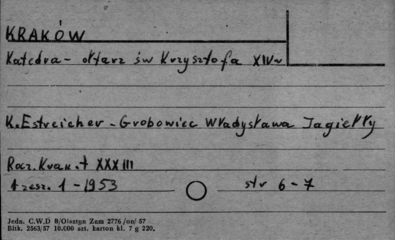 KRAKÓW
Katedra - ołtarz św Krzysztofa XIV w
K. Estreicher - Grobowiec Władysława Jagiełły
Rocz. Krak. t XXXIII
z zesz. 1 - 1953 str 6 - 7
Jedn. C.W.D B/Olsztyn Zam 2776/on/57
Bltk. 2563/57 10.000 szt. karton kl. 7 g 220.